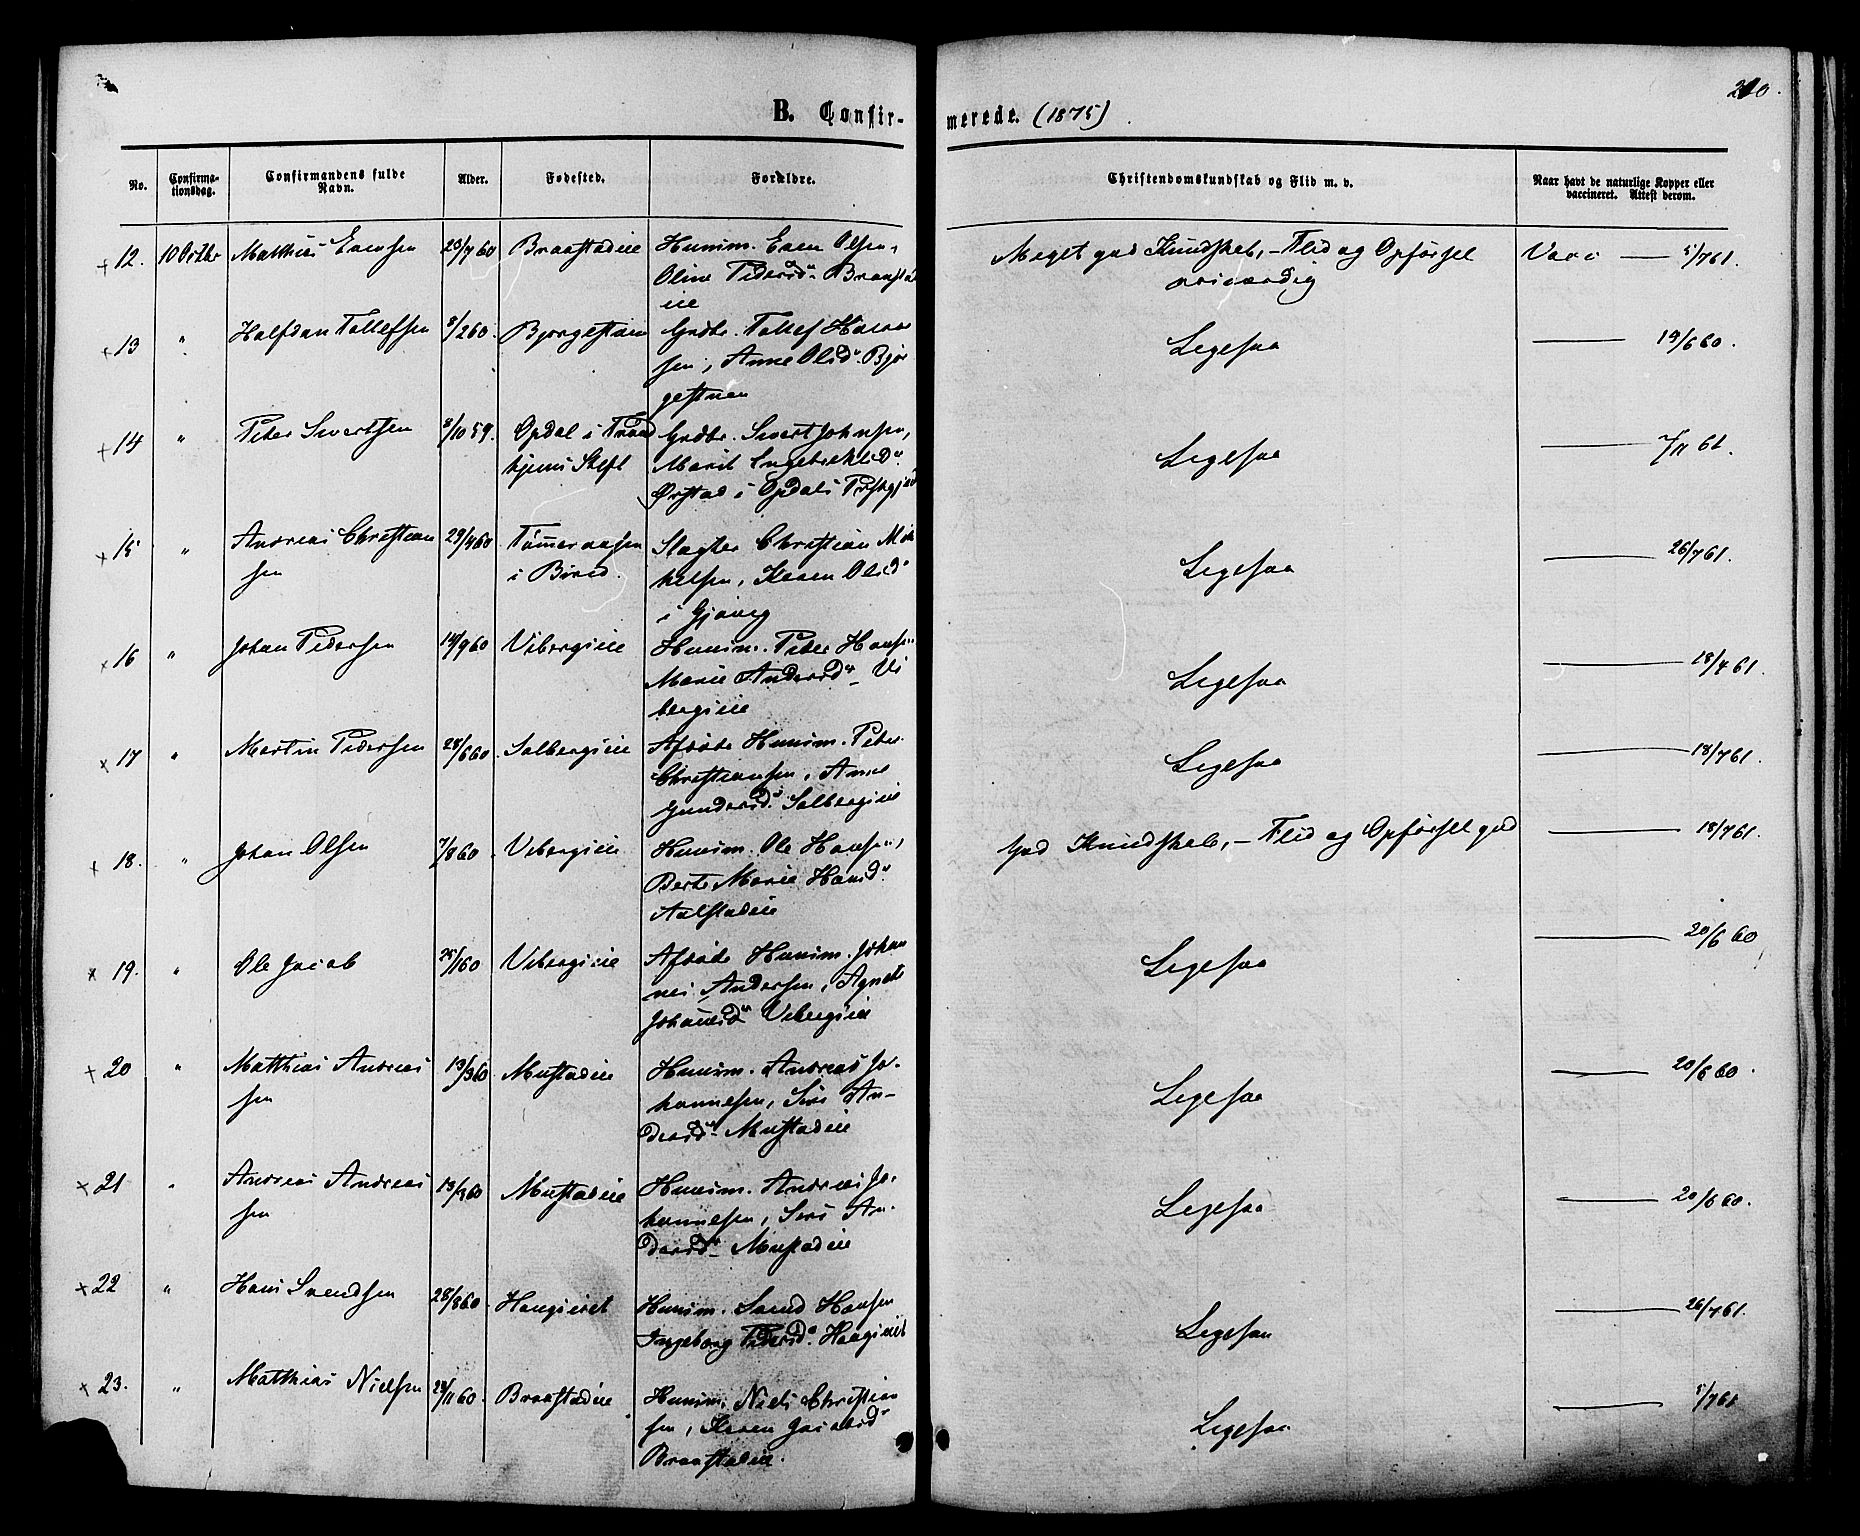 210.
B. Confir-
merede. (1875)
No.
Confirma-
tionsdag.
Confirmandens fulde
Navn.
Alder.
Fødested.
Forældre.
Christendomskundskab og Flid m. v.
Naar havt de naturlige Kopper eller
vaccineret. Attest derom.
12. 10 Octbr Matthias Evensen 23/7 60 Braastadeie Husm. Even Olsen,
Oline Pedersd. Braastad
eie
Meget god Kundskab, – Flid og Opførsel
prisværdig
Vacc — 5/7 61.
13 " Halfdan Tollefsen 8/2 60. Bjørgestuen Grdbr. Tollef Haavor
sen, Anne Olsd. Bjør
gestuen
Ligesaa — 19/6 60.
14 " Peter Sivertsen 8/10 59. Opdal i Trond
hjems Stift
Grdbr. Sivert Johnsen,
Marit Engebrektsd.
Ørstad i Opdals Prstgjæld
Ligesaa — 7/11 61.
15 " Andreas Christian
sen
29/4 60 Tømmeraasen
i Biried.
Slagter Christian Mik
kelsen, Karen Olsd.
i Gjøvig
Ligesaa — 26/7 61.
16 " Johan Pedersen 14/9 60 Vibergseie Husm. Peter Hansen
Marie Andersd. Vi
bergseie
Ligesaa — 18/7 61.
17 " Martin Pedersen 28/6 60. Solbergseie Afdøde Husm. Peter
Christiansen, Anne
Gundersd. Solbergseie
Ligesaa — 18/7 61.
18. " Johan Olsen 7/8 60. Vibergseie Husm. Ole Hansen,
Berte Marie Hansd.
Aalstadeie
God Kundskab, – Flid og Opførsel god — 18/7 61.
19. " Ole Jacob 25/1 60 Vibergseie Afdøde Husm. Johan
nes Andersen, Agnete
Johannesd. Vibergseie
Ligesaa — 20/6 60
20 " Matthias Andreas
sen
13/3 60 Mustadeie Husm. Andreas Jo-
hannesen, Siri An-
dersd. Mustadeie
Ligesaa — 20/6 60.
21 " Andreas Andreas
sen
13/3 60 Mustadeie Husm. Andreas Jo-
hannesen, Siri An-
dersd. Mustadeie
Ligesaa — 20/6 60.
22 " Hans Svendsen 28/8 60. Haugseiet Husm. Svend Hansen
Ingeborg Pedersd. Haugseiet
Ligesaa — 26/7 61.
23. " Matthias Nielsen 28/11 60. Braastadeie Husm. Niels Christian
sen, Karen Jacobsd.
Braastadeie.
Ligesaa — 5/7 61